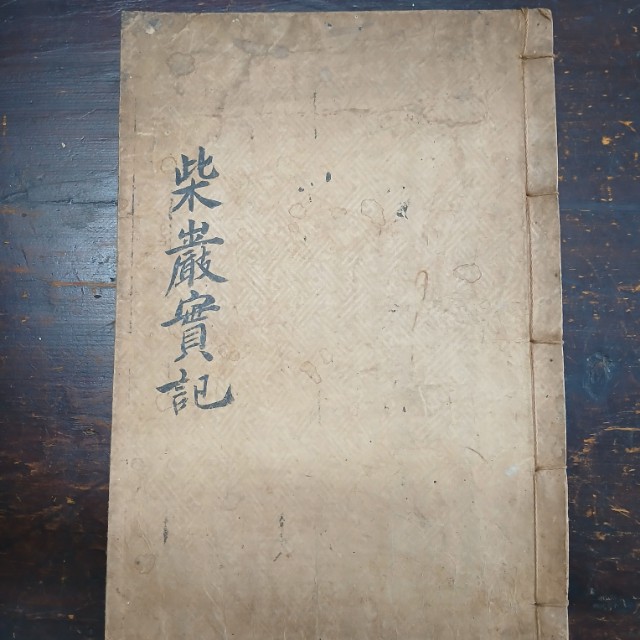 柴巖實記